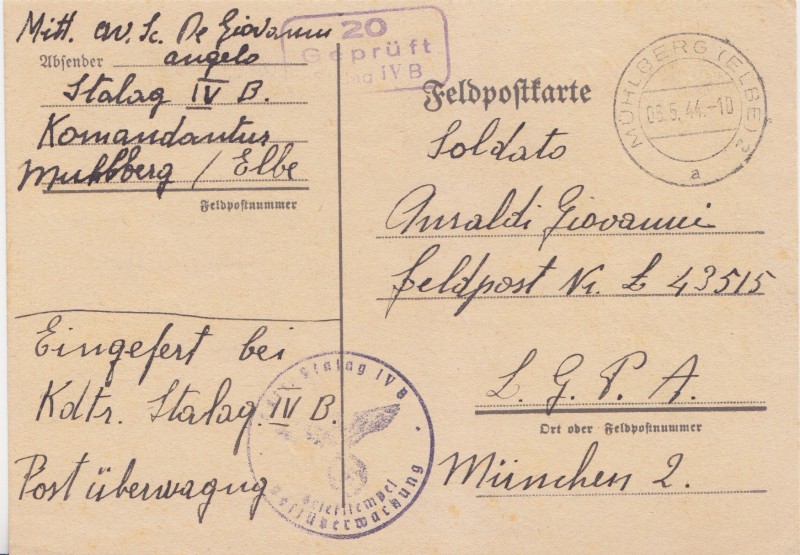 Mitt. av. Sc. De Giovanni
Absender angelo
Stalag IV B.
Komandantur
Muhlberg / Elbe
Feldpostnummer
Eingefert bei
Kdtr. Stalag. IV B.
Postüberwagug
20
Geprüft
Stalag IV B
Stalag IV B
Briefstempel
Postüberwachung
Feldpostkarte
MÜHLBERG (ELBE) 2
06.5.44.-10
a
Soldato
Ansaldi Giovanni
Feldpost Nr. L 43515
L. G. P. A.
Ort oder Feldpostnummer
München 2.